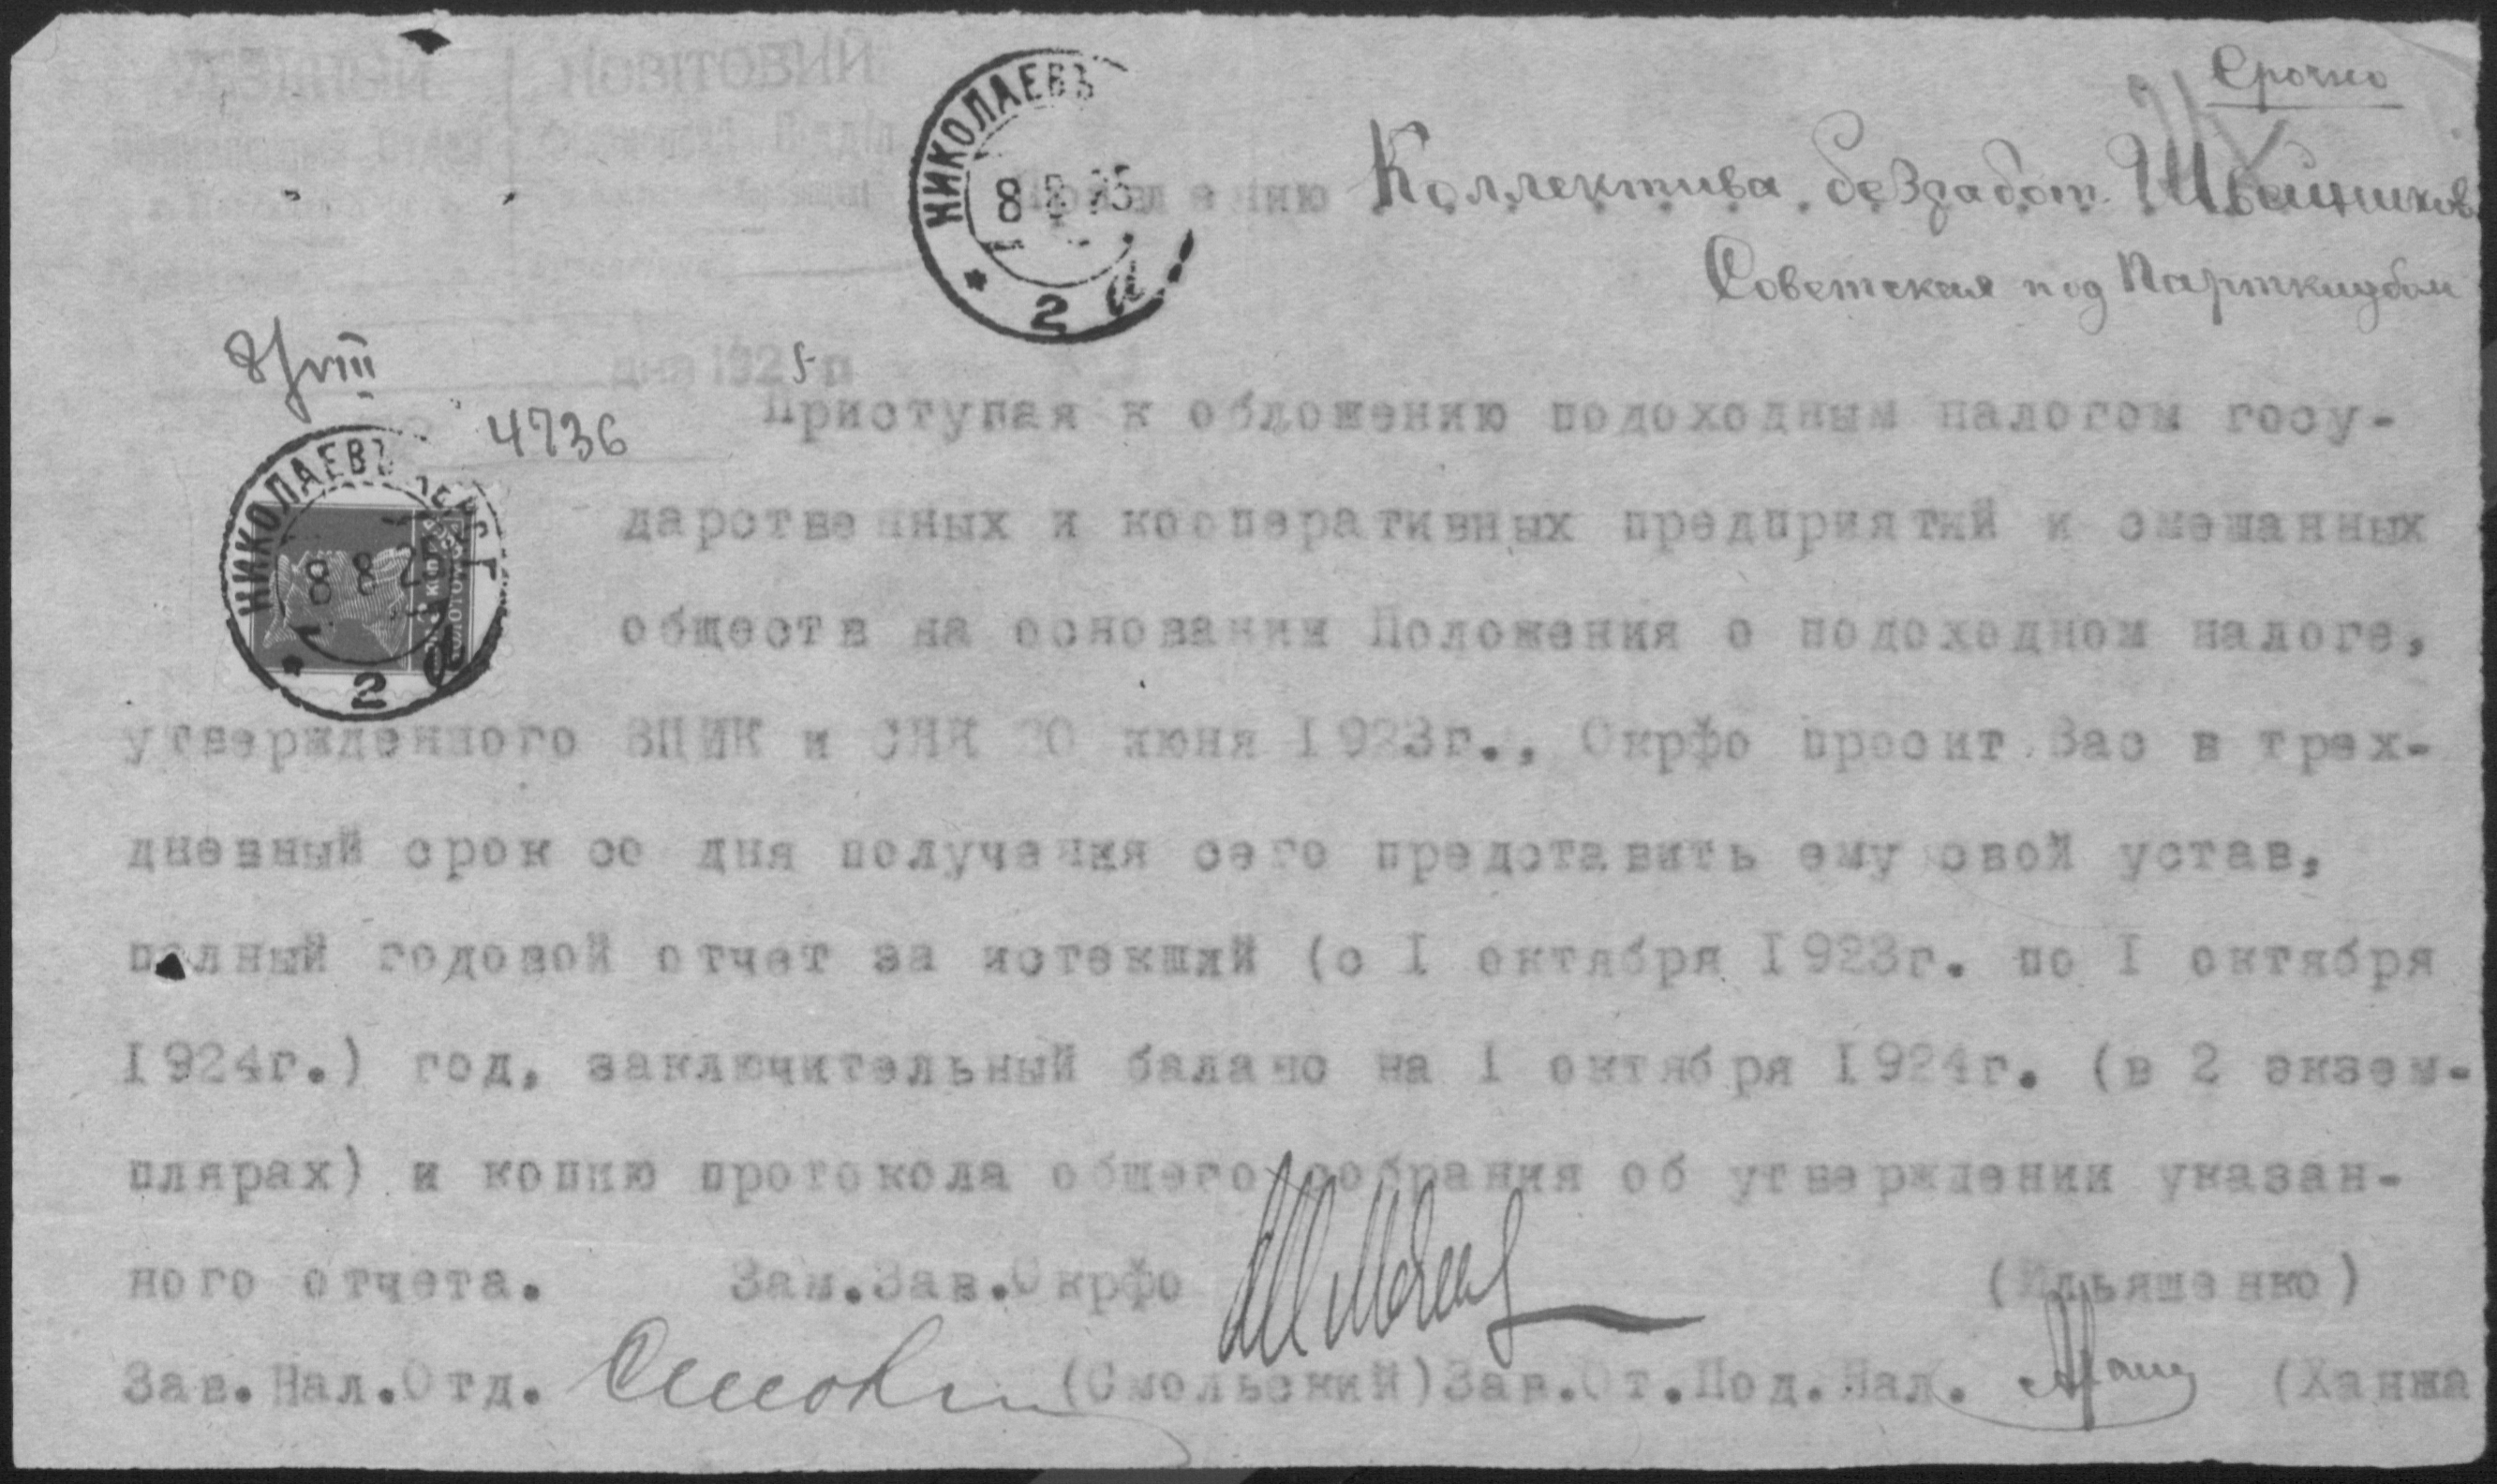 Срочно
НИКОЛАЕВЪ
8 8 25
* 2 а
Правлению Коллектива безработ. Швейников
Советская под Партклубом
8/VIII
дня 1925 р
4736
НИКОЛАЕВЪ
8 8 25
* 2
Приступая к обложению подоходным налогом госу-
дарственных и кооперативных предприятий и смешанных
обществ на основании Положения о подоходном налоге,
утвержденного ВЦИК и СНК 20 июня 1923г., Окрфо просит Вас в трех-
дневный срок со дня получения сего представить ему свой устав,
полный годовой отчет за истекший (с I октября I923г. по I октября
I924г.) год, заключительный баланс на 1 октября I924г. (в 2 экзем-
плярах) и копию протокола общего собрания об утверждении указан-
ного отчета. Зам.Зав.Окрфо (Ильяшенко)
Зав.Нал.Отд. (Смольский)Зав.От.Под.Нал. (Ханжа